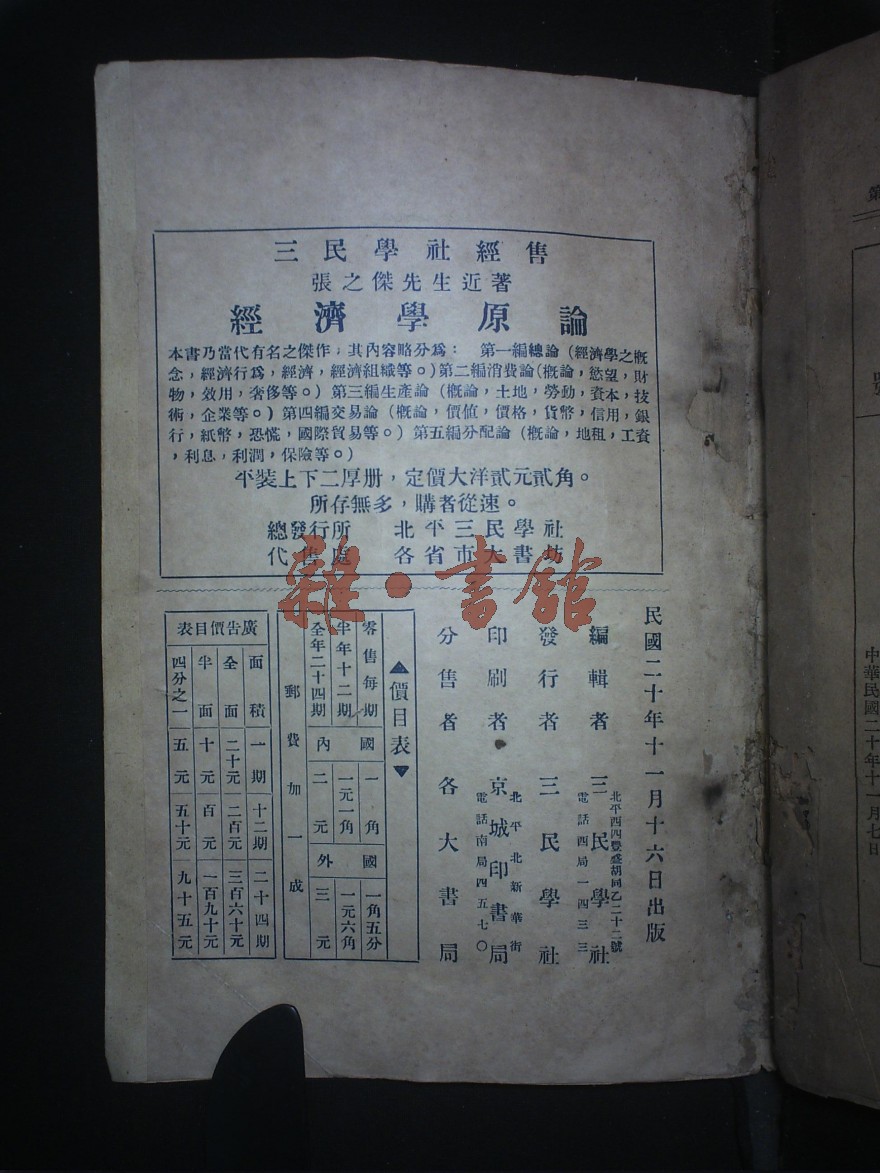 三民學社經售
張之傑先生近著
經濟學原論
本書乃當代有名之傑作,其內容略分爲: 第一編總論(經濟學之概
念,經濟行爲,經濟,經濟組織等。)第二編消費論(概論,慾望,財
物,效用,奢侈等。)第三編生產論(概論,土地,勞動,資本,技
術,企業等。)第四編交易論(概論,價值,價格,貨幣,信用,銀
行,紙幣,恐慌,國際貿易等。)第五編分配論(概論,地租,工資
,利息,利潤,保險等。)
平裝上下二厚册,定價大洋貳元貳角。
所存無多,購者從速。
總發行所 北平三民學社
代售處 各省市大書坊
雜·書館
民國二十年十一月十六日出版
北平西四豐盛胡同乙二十二號
編輯者 三民學社
電話西局一四三三
發行者 三民學社
北平北新華街
印刷者 京城印書局
電話南局四五七〇
分售者 各大書局
▲價目表▼
零售每期 國 一角 國 一角五分
半年十二期 一元一角 一元六角
全年二十四期 內 二元 外 三元
郵費加一成
廣告價目表
面積 一期 十二期 二十四期
全面 二十元 二百元 三百六十元
半面 十元 百元 一百九十元
四分之一 五元 五十元 九十五元
第
號
中華民國二十年十一月七日